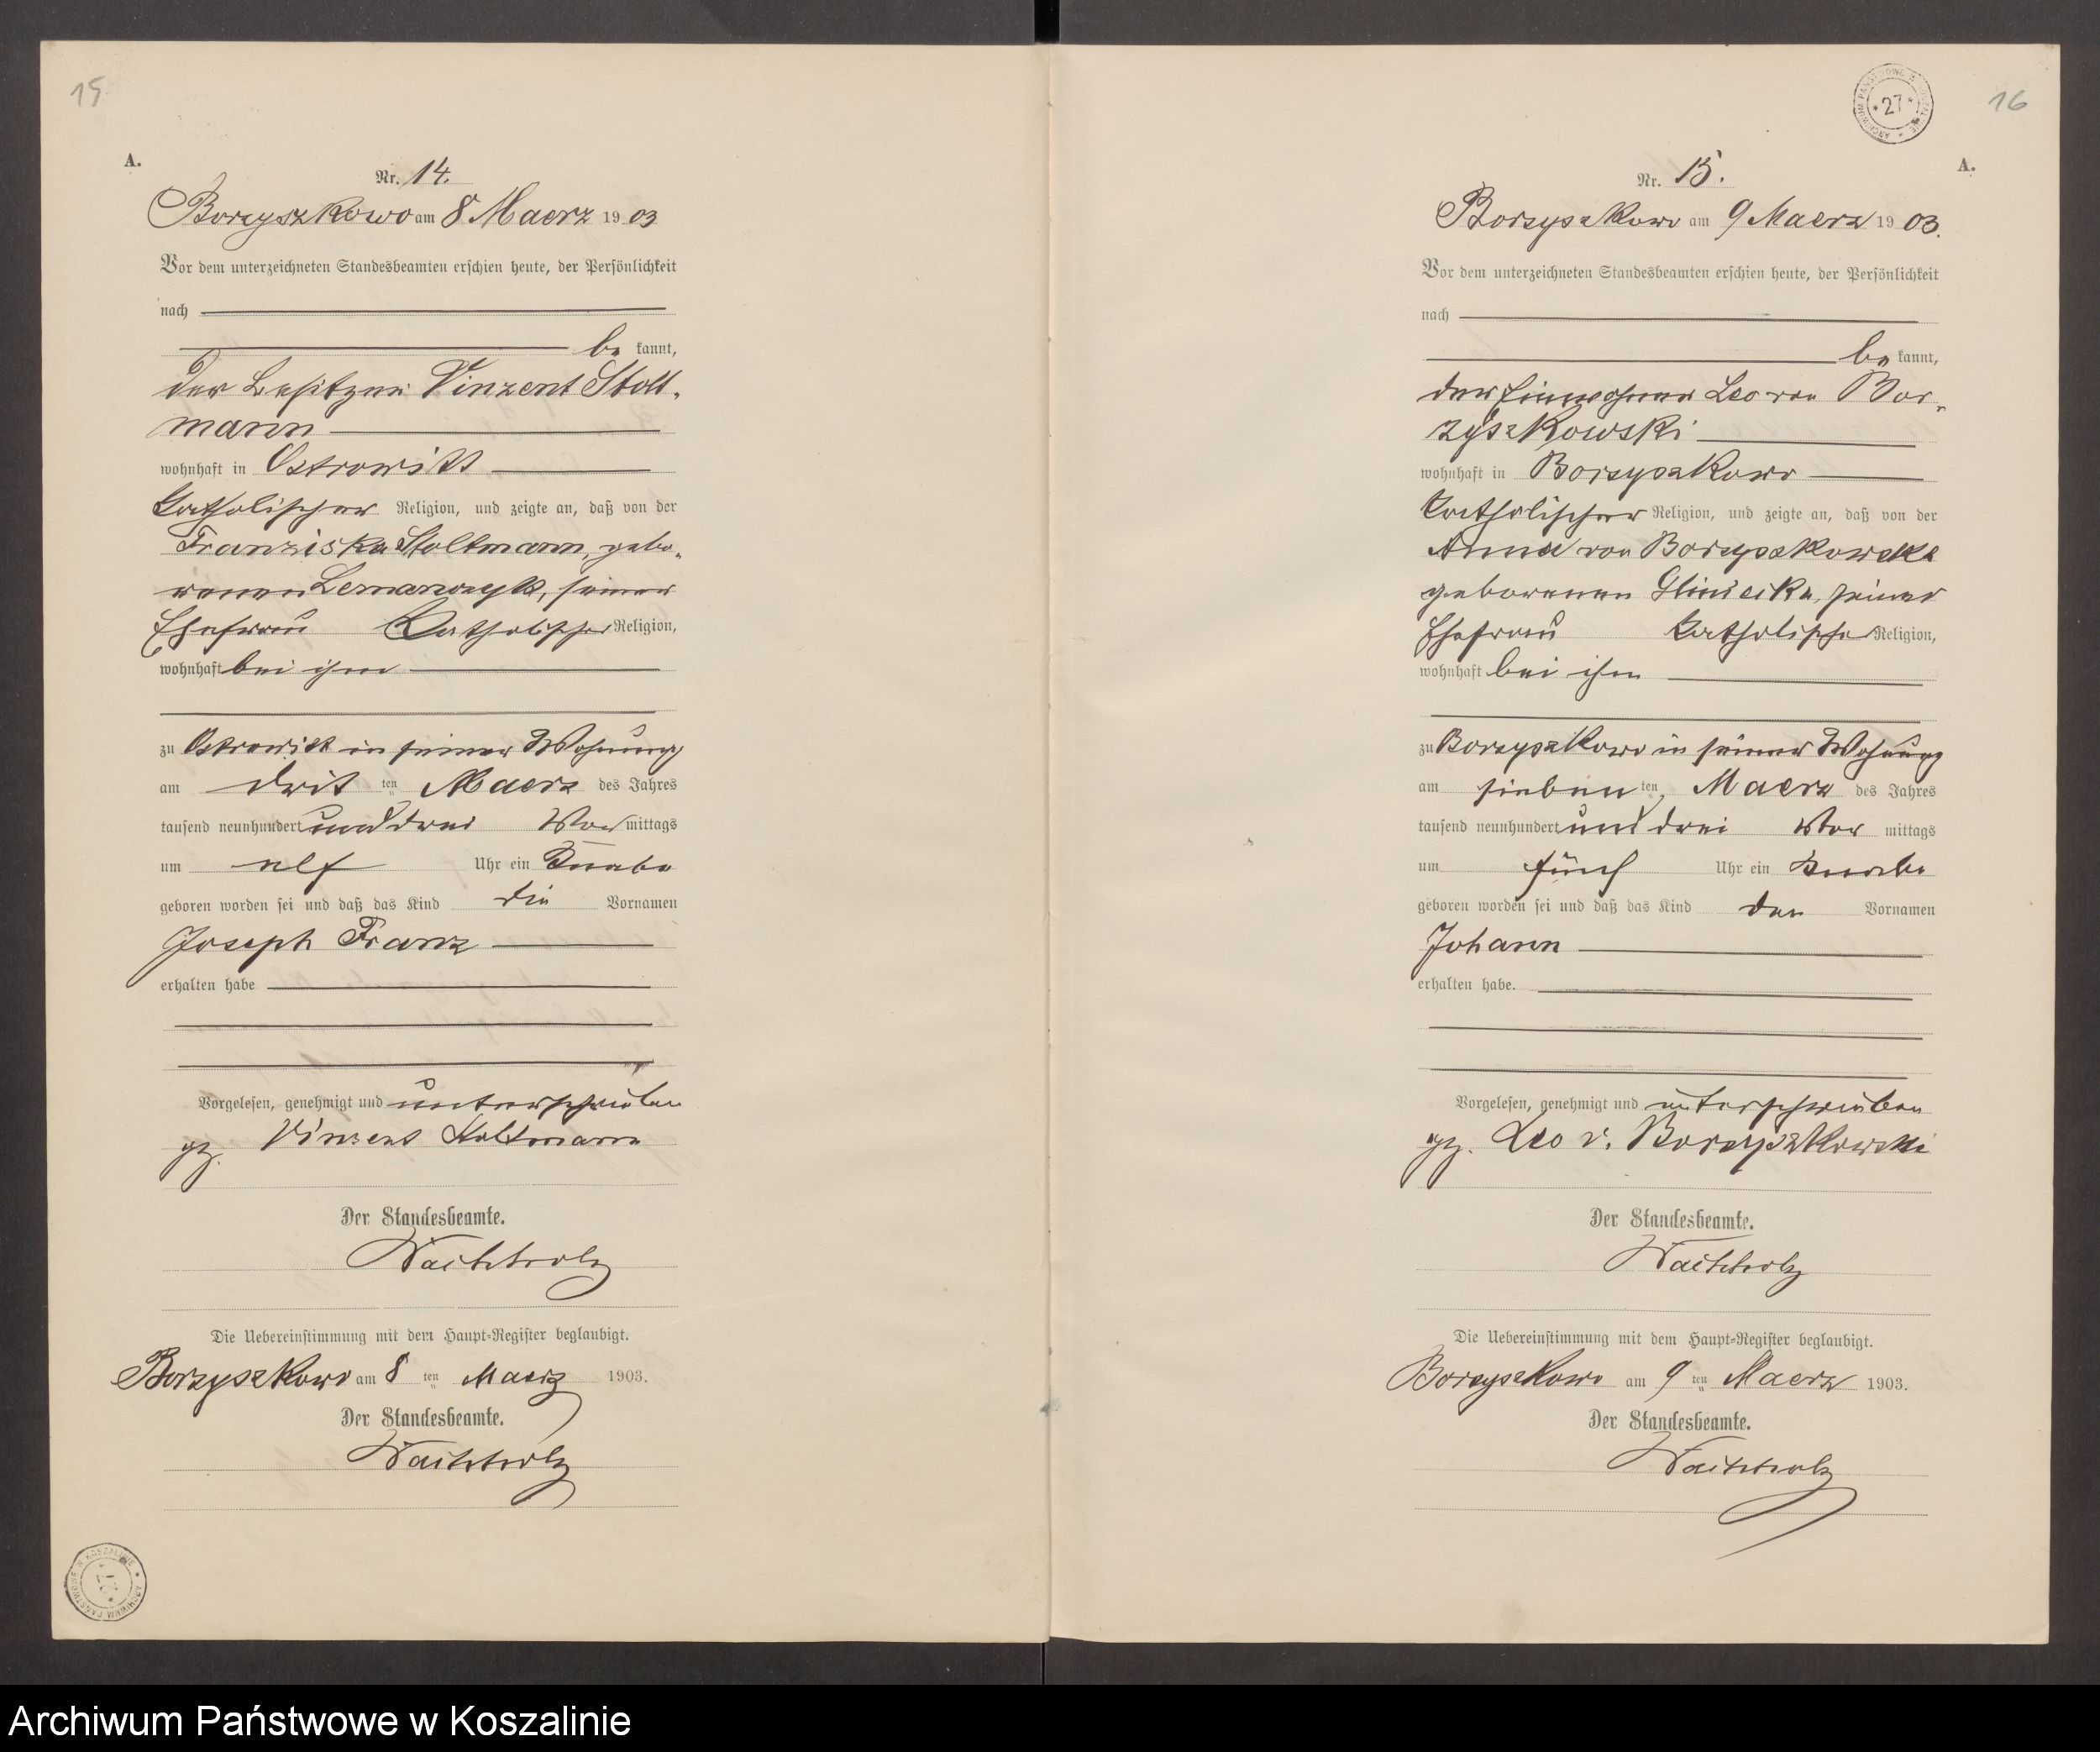 15
A.
Nr. 14.
Borzyszkowo am 8 Maerz 1903
Vor dem unterzeichneten Standesbeamten erschien heute, der Persönlichkeit
nach
be kannt,
der Besitzer Vinzent Stolt-
mann
wohnhaft in Ostrowitt
katholischer Religion, und zeigte an, daß von der
Franziska Stoltmann, gebo-
renen Lemanczyk, seiner
Ehefrau katholischer Religion,
wohnhaft bei ihm
zu Ostrowitt in seiner Wohnung
am drit ten Maerz des Jahres
tausend neunhundert und drei Vor mittags
um elf Uhr ein Knabe
geboren worden sei und daß das Kind die Vornamen
Joseph Franz
erhalten habe
Vorgelesen, genehmigt und unterschrieben
gz. Vinzent Stoltmann
Der Standesbeamte.
Wachholz
Die Uebereinstimmung mit dem Haupt-Register beglaubigt.
Borzyszkowo am 8 ten Maerz 1903.
Der Standesbeamte.
Wachholz
ARCHIWUM PAŃSTWOWE W KOSZALINIE
27
16
ARCHIWUM PAŃSTWOWE W KOSZALINIE
27
A.
Nr. 15.
Borzyszkowo am 9 Maerz 1903.
Vor dem unterzeichneten Standesbeamten erschien heute, der Persönlichkeit
nach
be kannt,
der Einwohner Leo von Bor-
zyszkowski
wohnhaft in Borzyszkowo
katholischer Religion, und zeigte an, daß von der
Anna von Borzyszkowska
geborenen Gliniecka, seiner
Ehefrau katholischer Religion,
wohnhaft bei ihm
zu Borzyszkowo in seiner Wohnung
am sieben ten Maerz des Jahres
tausend neunhundert und drei Vor mittags
um fünf Uhr ein Knabe
geboren worden sei und daß das Kind den Vornamen
Johann
erhalten habe.
Vorgelesen, genehmigt und unterschrieben
gz. Leo v. Borzyszkowski
Der Standesbeamte.
Wachholz
Die Uebereinstimmung mit dem Haupt-Register beglaubigt.
Borzyszkowo am 9 ten Maerz 1903.
Der Standesbeamte.
Wachholz
Archiwum Państwowe w Koszalinie